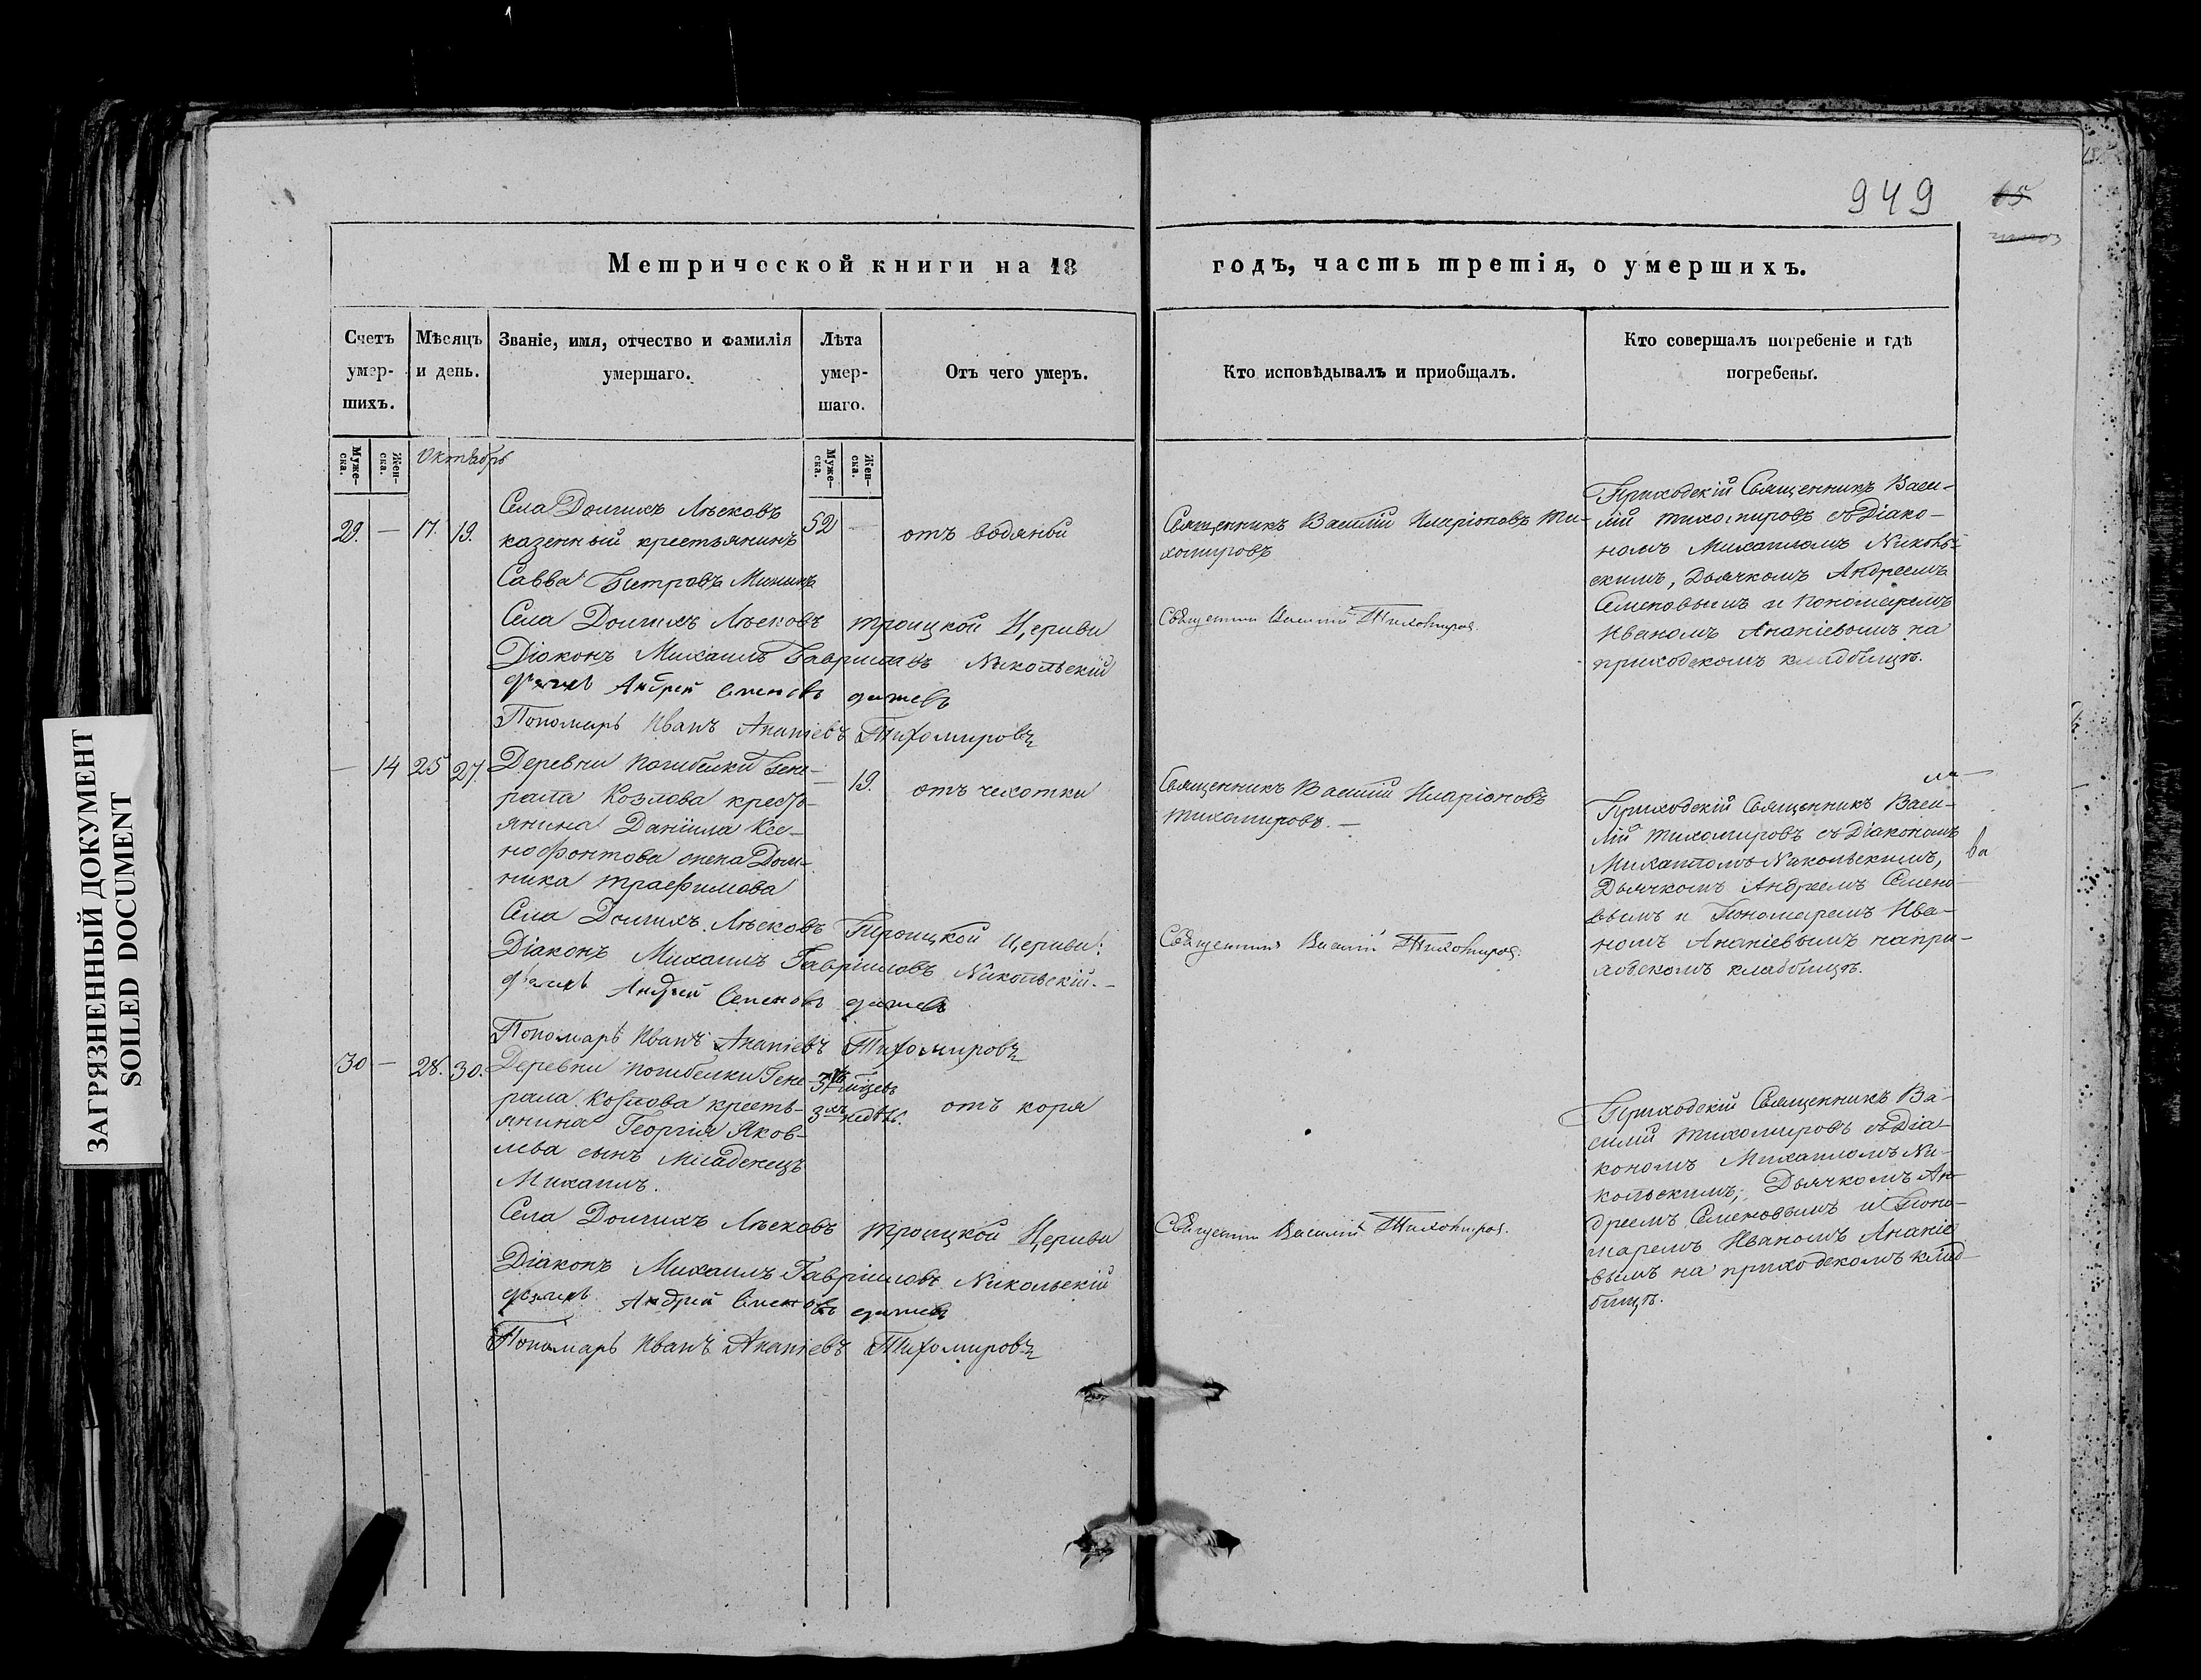 949
65
Метрической книги на 18
годъ, часть третія, о умершихъ.
Счетъ умер- шихъ.
Мѣсяцъ и день.
Званіе, имя, отчество и фамилія умершаго.
Лѣта умер- шаго.
Отъ чего умеръ.
Кто исповѣдывалъ и приобщалъ.
Кто совершалъ погребеніе и гдѣ погребены.
Муже- ска.
Жен- ска.
Октябрь
Муже- ска.
Жен- ска.
29. — 17. 19.
Села Долгихъ Лѣсковъ
казенный крестьянинъ
Савва Петровъ Мининъ
52 —
отъ водяной
Священникъ Василій Иларіоновъ Ти-
хомировъ
Приходскій Священникъ Васи-
лій Тихомировъ съ Діако-
номъ Михаиломъ Николь-
скимъ, Дьячкомъ Андреемъ
Семеновымъ и Пономаремъ
Иваномъ Ананіевымъ на
приходскомъ кладбищѣ.
Села Долгихъ Лѣсковъ Троицкой Церкви
Священникъ Василій Тихомировъ.
Діаконъ Михаилъ Гавриловъ Никольскій
Андрей Семеновъ
Пономарь Иванъ Ананіевъ Тихомировъ
— 14 25 27.
Деревни Погибелки Гене-
рала Козлова кресть-
янина Даніила Ксе-
нофонтова жена Дом-
ника Трафимова
— 19.
отъ чехотки
Священникъ Василій Иларіоновъ
Тихомировъ. —
Приходскій Священникъ Васи-
лій Тихомировъ съ Діакономъ
Михаиломъ Никольскимъ,
Дьячкомъ Андреемъ Семено-
вымъ и Пономаремъ Ива-
номъ Ананіевымъ на при-
ходскомъ кладбищѣ.
Села Долгихъ Лѣсковъ Троицкой Церкви:
Священникъ Василій Тихомировъ.
Діаконъ Михаилъ Гавріиловъ Никольскій. —
Андрей Семеновъ
Пономарь Иванъ Ананіевъ Тихомировъ
30 — 28. 30.
Деревни Погибелки Гене-
рала Козлова кресть-
янина Георгія Яков-
лева сынъ младенецъ
Михаилъ.
3хъ недѣль.
отъ коря
Приходскій Священникъ Ва-
силій Тихомировъ съ Діа-
кономъ Михаиломъ Ни-
кольскимъ, Дьячкомъ Ан-
дреемъ Семеновымъ и Поно-
маремъ Иваномъ Ананіе-
вымъ на приходскомъ клад-
бищѣ.
Села Долгихъ Лѣсковъ Троицкой Церкви
Священникъ Василій Тихомировъ.
Діаконъ Михаилъ Гавріиловъ Никольскій
Андрей Семеновъ
Пономарь Иванъ Ананіевъ Тихомировъ
ЗАГРЯЗНЕННЫЙ ДОКУМЕНТ
SOILED DOCUMENT